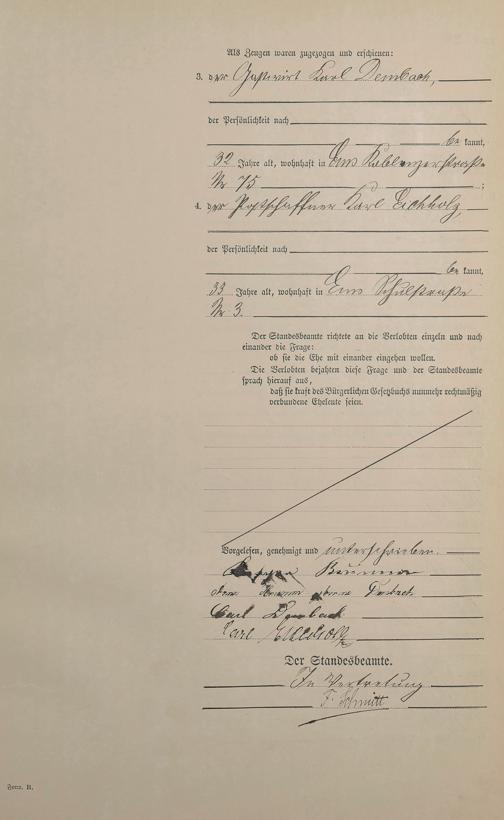 Als Zeugen waren zugezogen und erschienen:
3. der Gastwirt Karl Dembach,
der Persönlichkeit nach
be kannt,
32 Jahre alt, wohnhaft in Ems Koblenzerstraße
Nr 75 ;
4. der Postschaffner Karl Eichholz,
der Persönlichkeit nach
be kannt,
33 Jahre alt, wohnhaft in Ems Schulstraße
Nr 3.
Der Standesbeamte richtete an die Verlobten einzeln und nach
einander die Frage:
ob sie die Ehe mit einander eingehen wollen.
Die Verlobten bejahten diese Frage und der Standesbeamte
sprach hierauf aus,
daß sie kraft des Bürgerlichen Gesetzbuchs nunmehr rechtmäßig
verbundene Eheleute seien.
Vorgelesen, genehmigt und unterschrieben.
geborene
Carl Dembach
Karl Eichholz
Der Standesbeamte.
In Vertretung
F. Schmitt
Form. B.